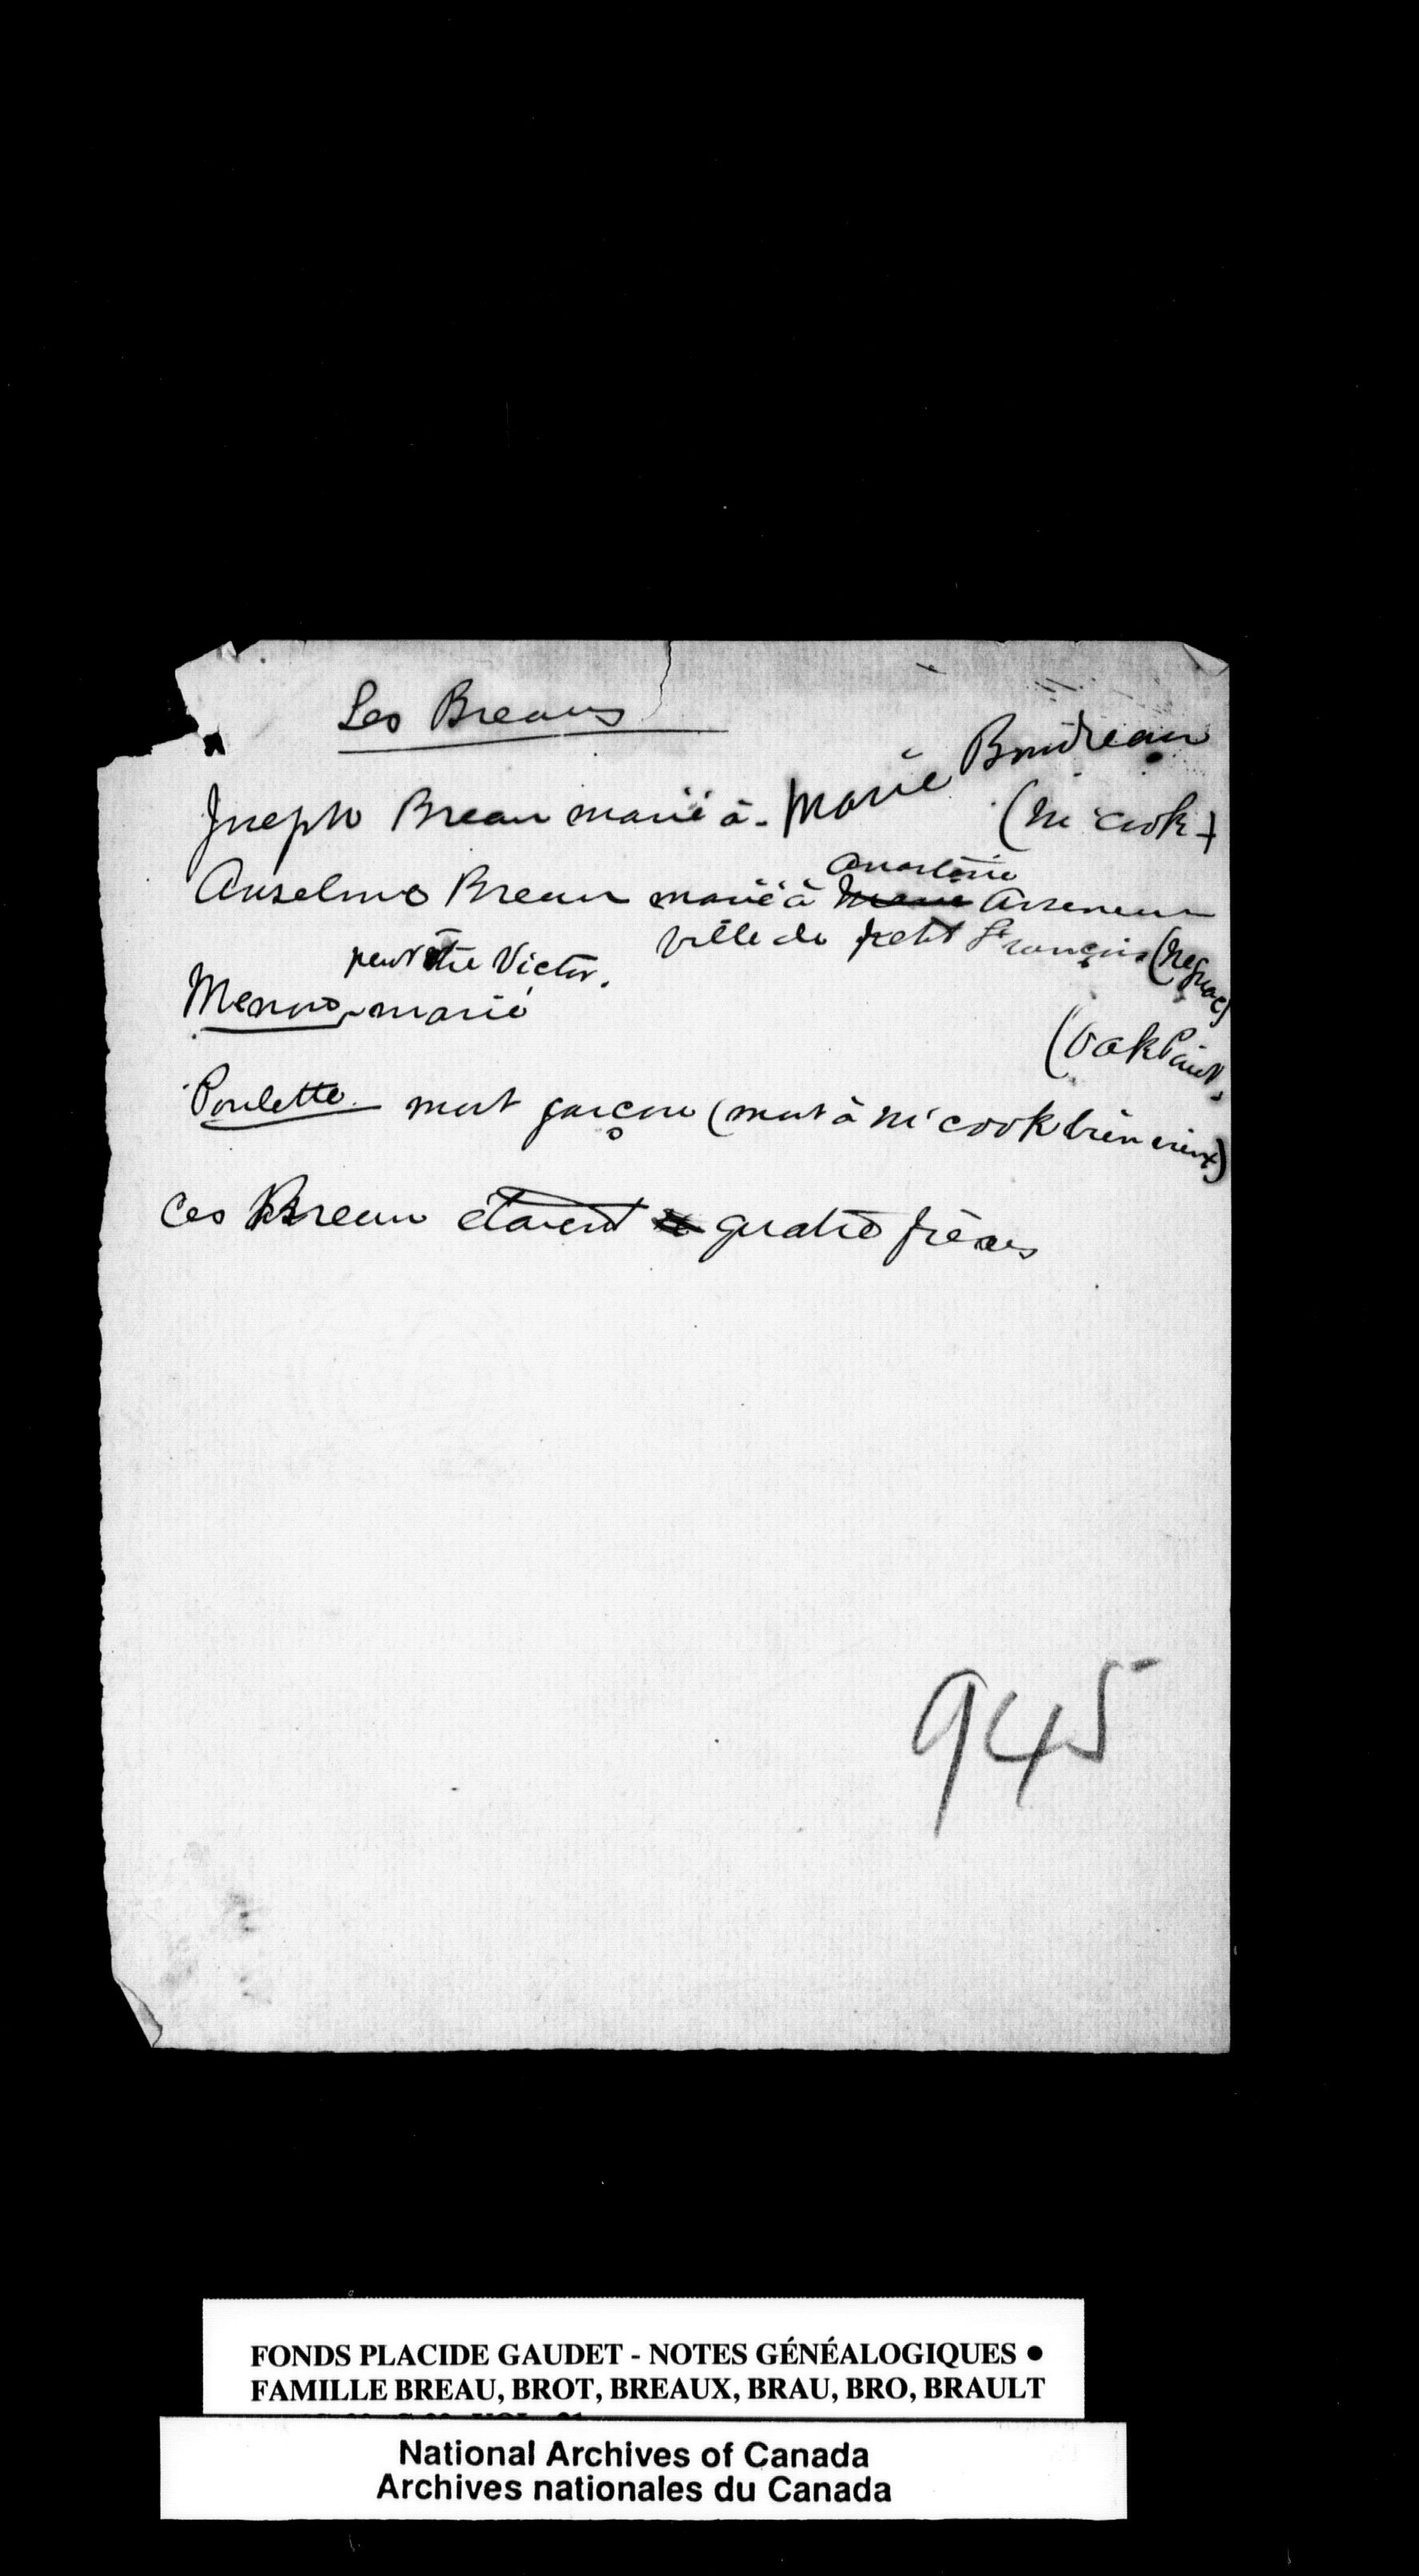 Les Breaus
Joseph Breau marié à - Marie Boudreau
(Ni cook)
Anastasie
Anselme Breau marié à Marie Arseneau
fille de petit François (Neguac)
peut être Victor.
Menno, marié
(Oak Point,
Poulette mort garçon (mort à Ni'cook bien vieux)
Ces Breau étaient quatre frères
945
FONDS PLACIDE GAUDET - NOTES GÉNÉALOGIQUES •
FAMILLE BREAU, BROT, BREAUX, BRAU, BRO, BRAULT
National Archives of Canada
Archives nationales du Canada